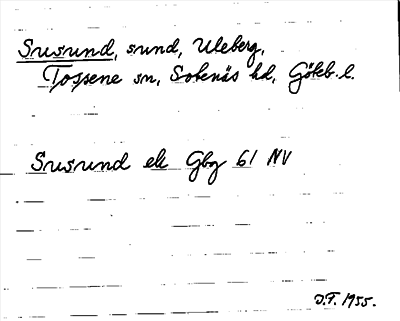 Susund, sund, Uleberg,
Tossene sn, Sotenäs hd, Göteb. l.
Susund ek Gbg 61 NV
D.F. 1955.